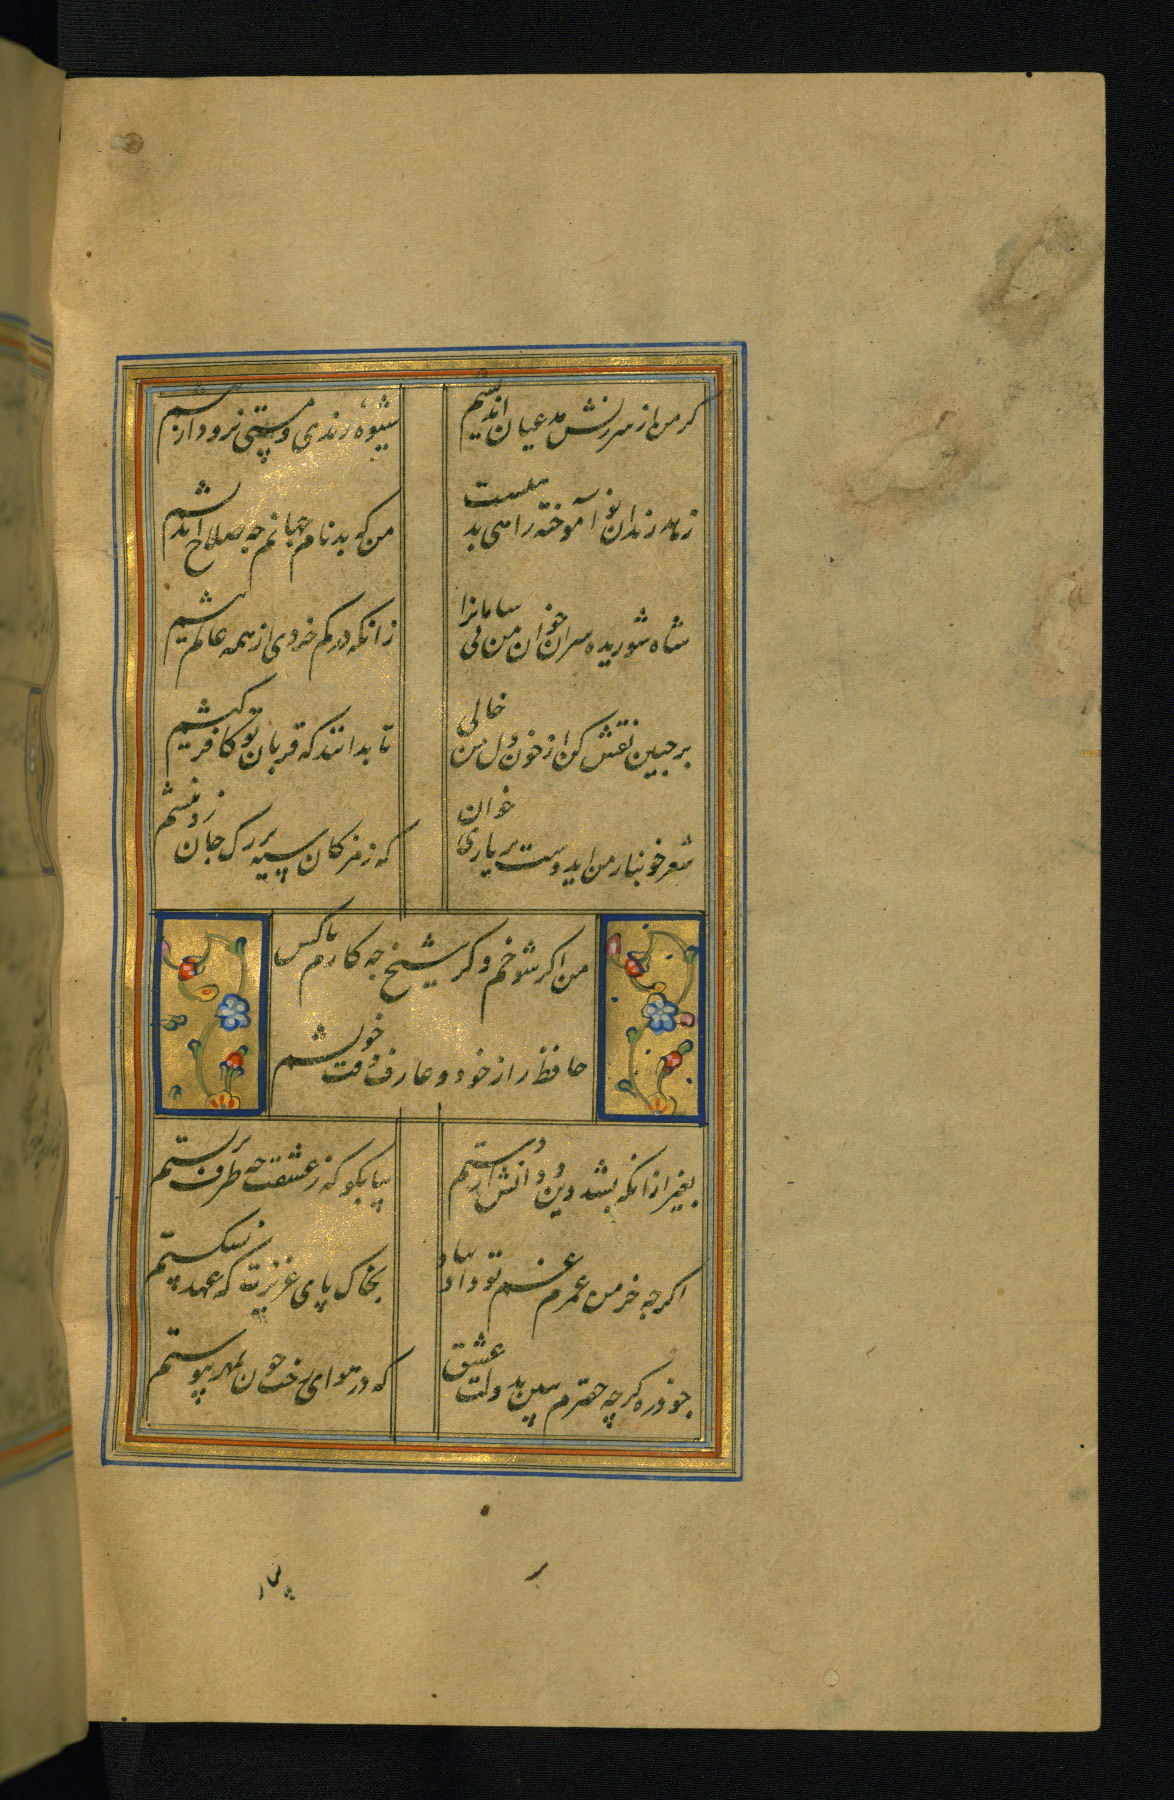 کر من از سرزنش مدعیان اندیشم
شیوه رندی و مستی نرود از پیشم
زهد رندان نو آموخته راهی بدهیست
من که بدنام جهانم چه صلاح اندیشم
شاه شوریده سران خوان من بی سامانرا
زانکه در کم خردی از همه عالم بیشم
بر جبین نقش کن از خون دل من خالی
تا بدانند که قربان تو کافر کیشم
شعر خونبار من ایدوست بر یاری خوان
که ز مژکان سیه بر رک جان زد نیشم
من اکر شوخم و کر شیخ چه کارم با کس
حافظ راز خود و عارف وقت خویشم
بغیر از انکه بشد دین و دانش از دستم
بیا بکو که ز عشقت چه طرف بربستم
اکرچه خرمن عمرم غم تو داد بباد
بخاک پای عزیزت که عهد نشکستم
چو ذره کرچه حقیرم ببین بدولت عشق
که در هوای رخت چون بمهر پیوستم